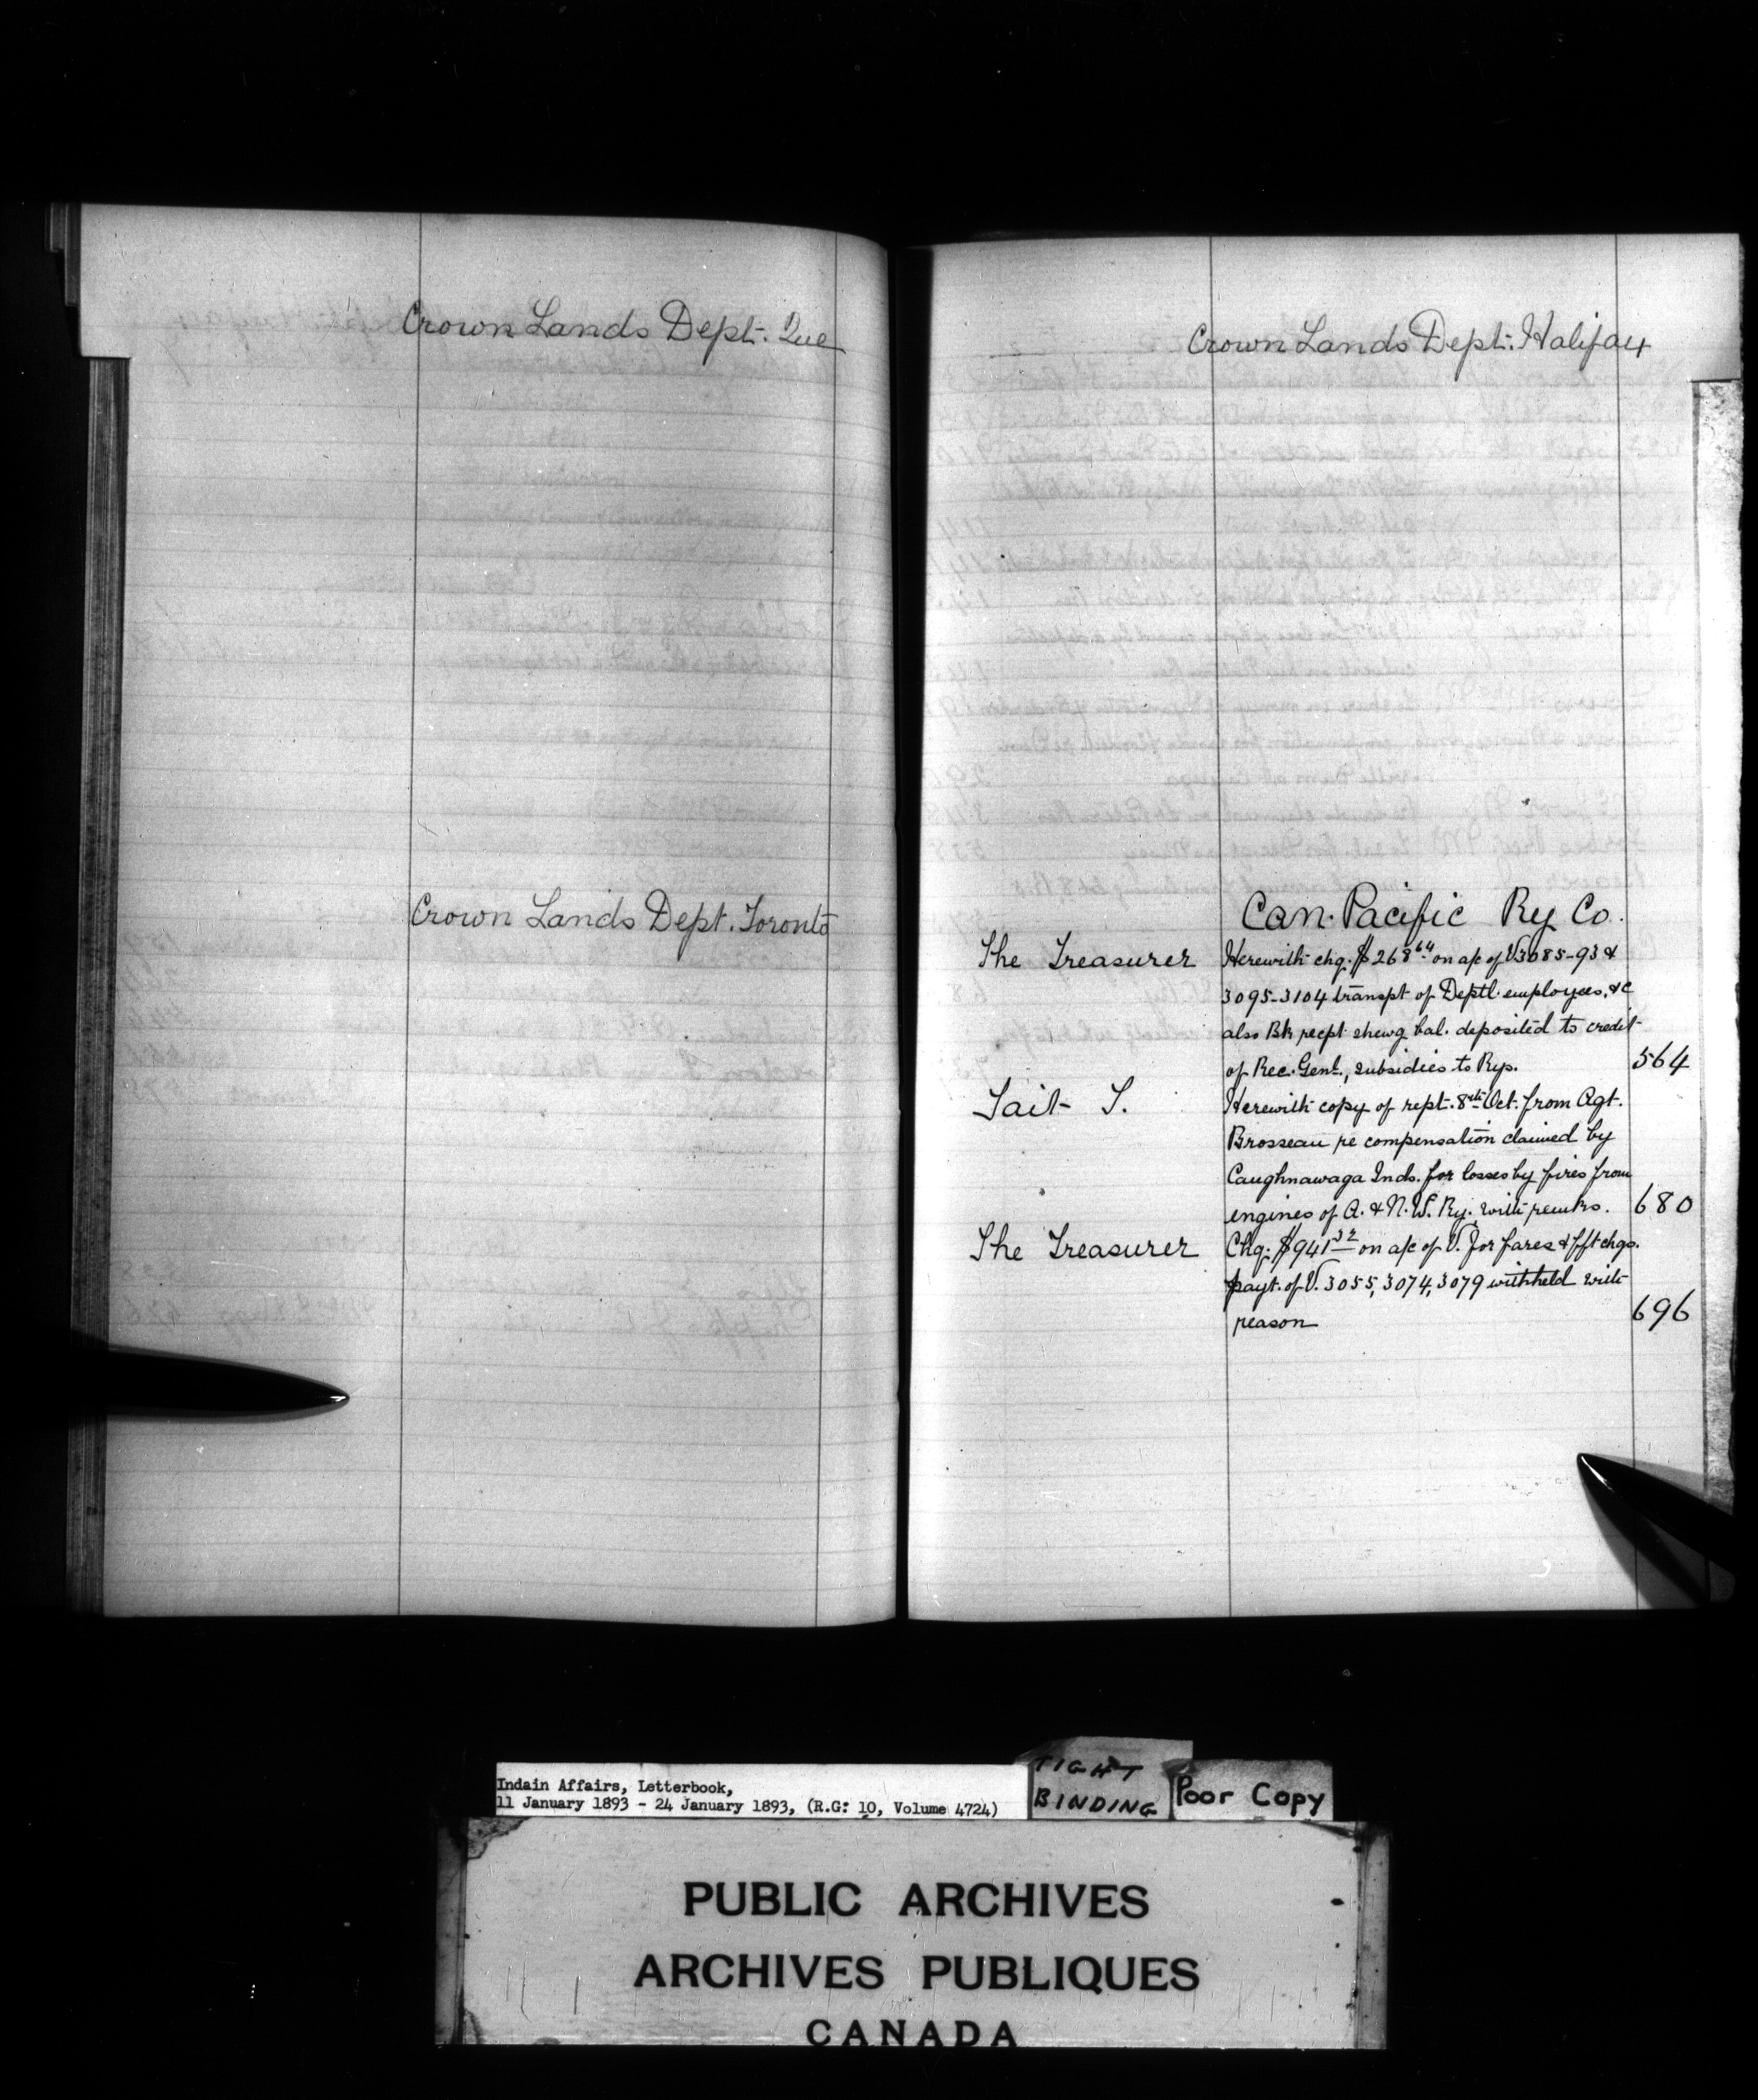 Crown Lands Dept. Que
Crown Lands Dept. Toronto
Crown Lands Dept. Halifax
Can. Pacific Ry Co.
The Treasurer Herewith chq. $268.64 on a/c of V3085-93 &
3095-3104 transpt of Deptl. employees, &c
also Bk recpt shewg bal. deposited to credit
of Rec. Genl., subsidies to Rys. 564
Tait T. Herewith copy of rept. 8th Oct. from Agt.
Brosseau re compensation claimed by
Caughnawaga Inds. for losses by fires from
engines of A. & N.W. Ry. with remks. 680
The Treasurer Chq. $941.32 on a/c of V. for fares & fft chgs.
payt. of V. 3055, 3074, 3079 withheld with
reason 696
Indain Affairs, Letterbook,
11 January 1893 - 24 January 1893, (R.G: 10, Volume 4724)
TIGHT
BINDING
Poor Copy
PUBLIC ARCHIVES
ARCHIVES PUBLIQUES
CANADA